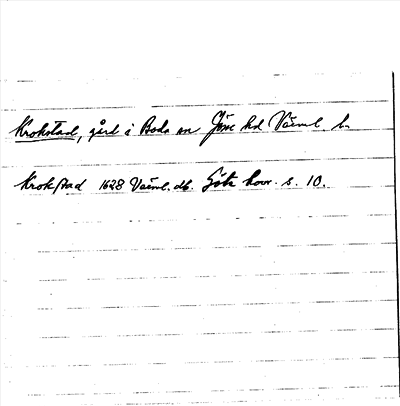 Krokstad, gård i Boda sn Jösse hd Värml. l.
Krokstad 1628 Värml. db. Göta hovr. s. 10.